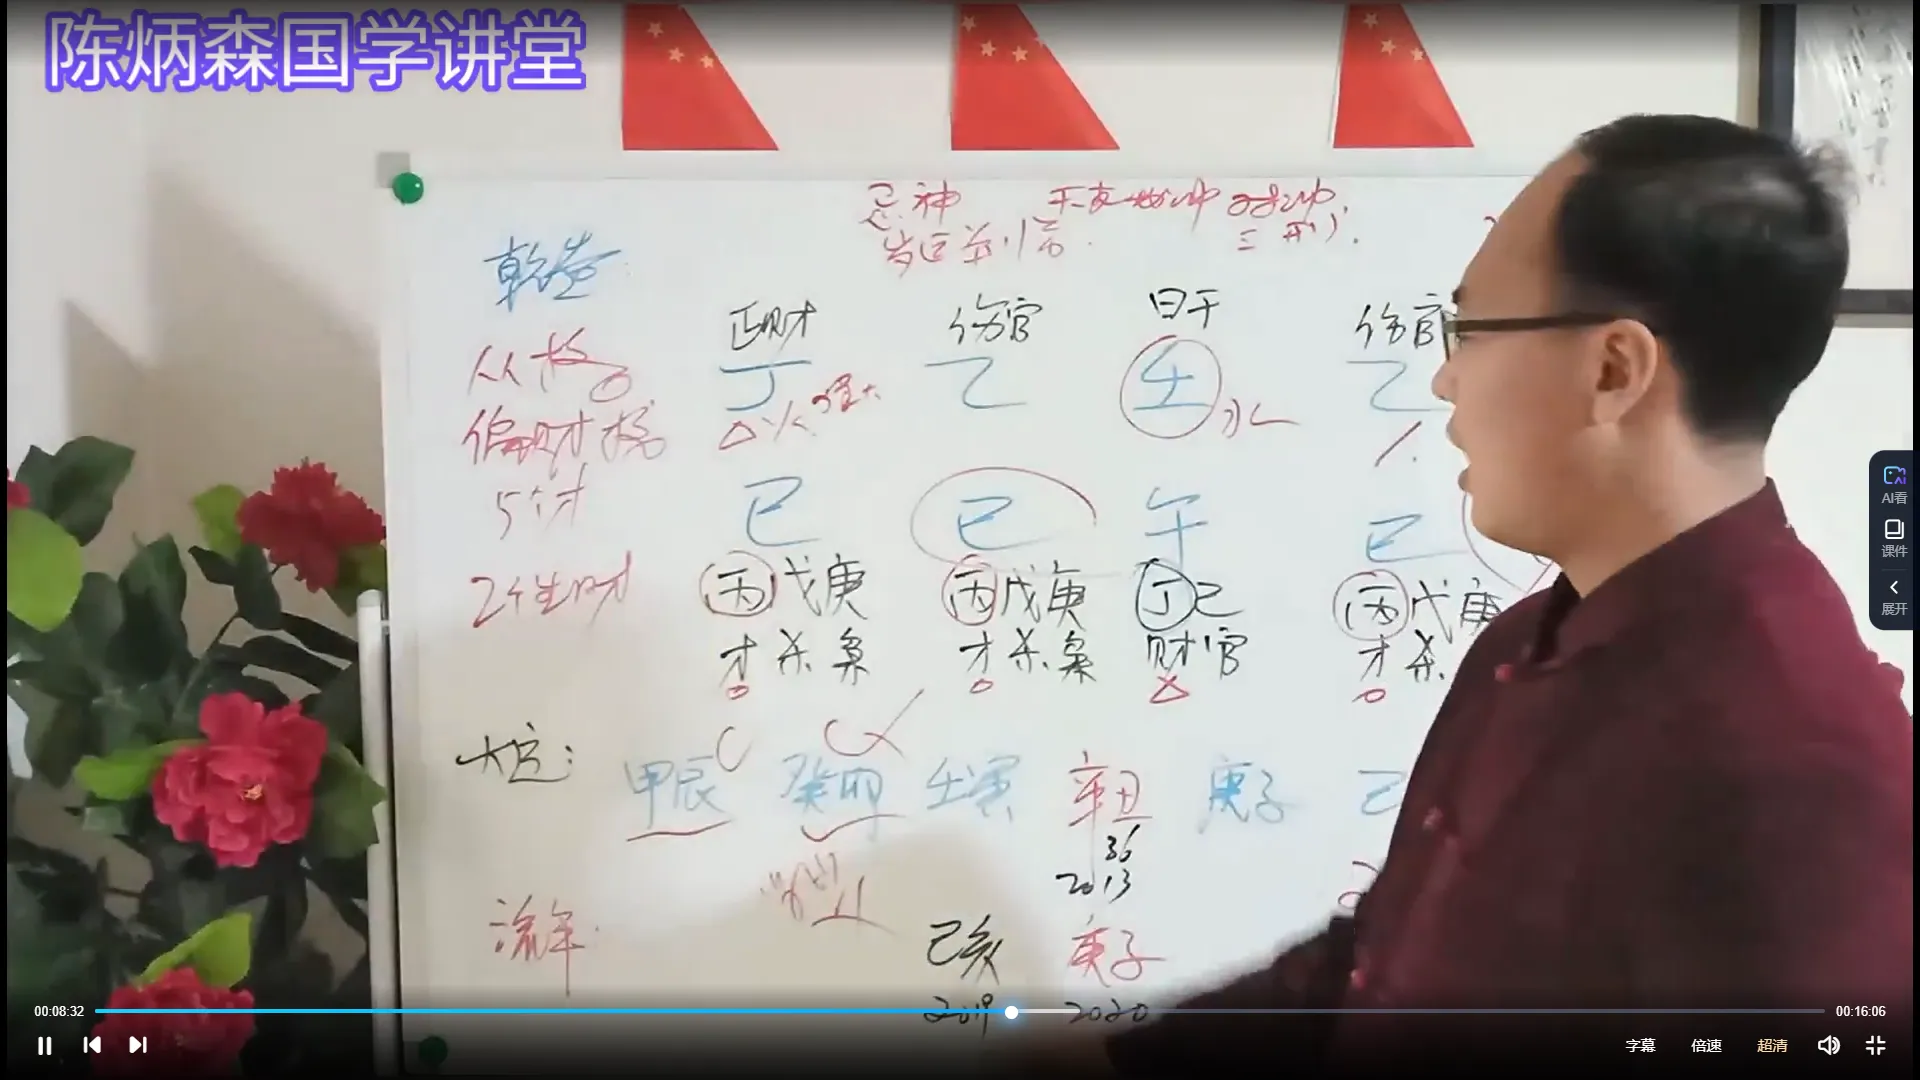 陈炳森国学讲堂
忌神 天支 对冲
岁运并临 三刑
乾造
正财 伤官 日干 伤官
从格 丁 乙 壬 乙
偏财格 火 强大 水
5个才 巳 巳 午 巳
2个生财 丙戊庚 丙戊庚 丁己 丙戊庚
才杀枭 才杀枭 财官 才杀
大运: 甲辰 癸卯 壬寅 辛丑 庚子 己
36
2013
流年: 己亥 庚子
2019 2020
AI看
课件
展开
00:08:32 00:16:06
字幕 倍速 超清